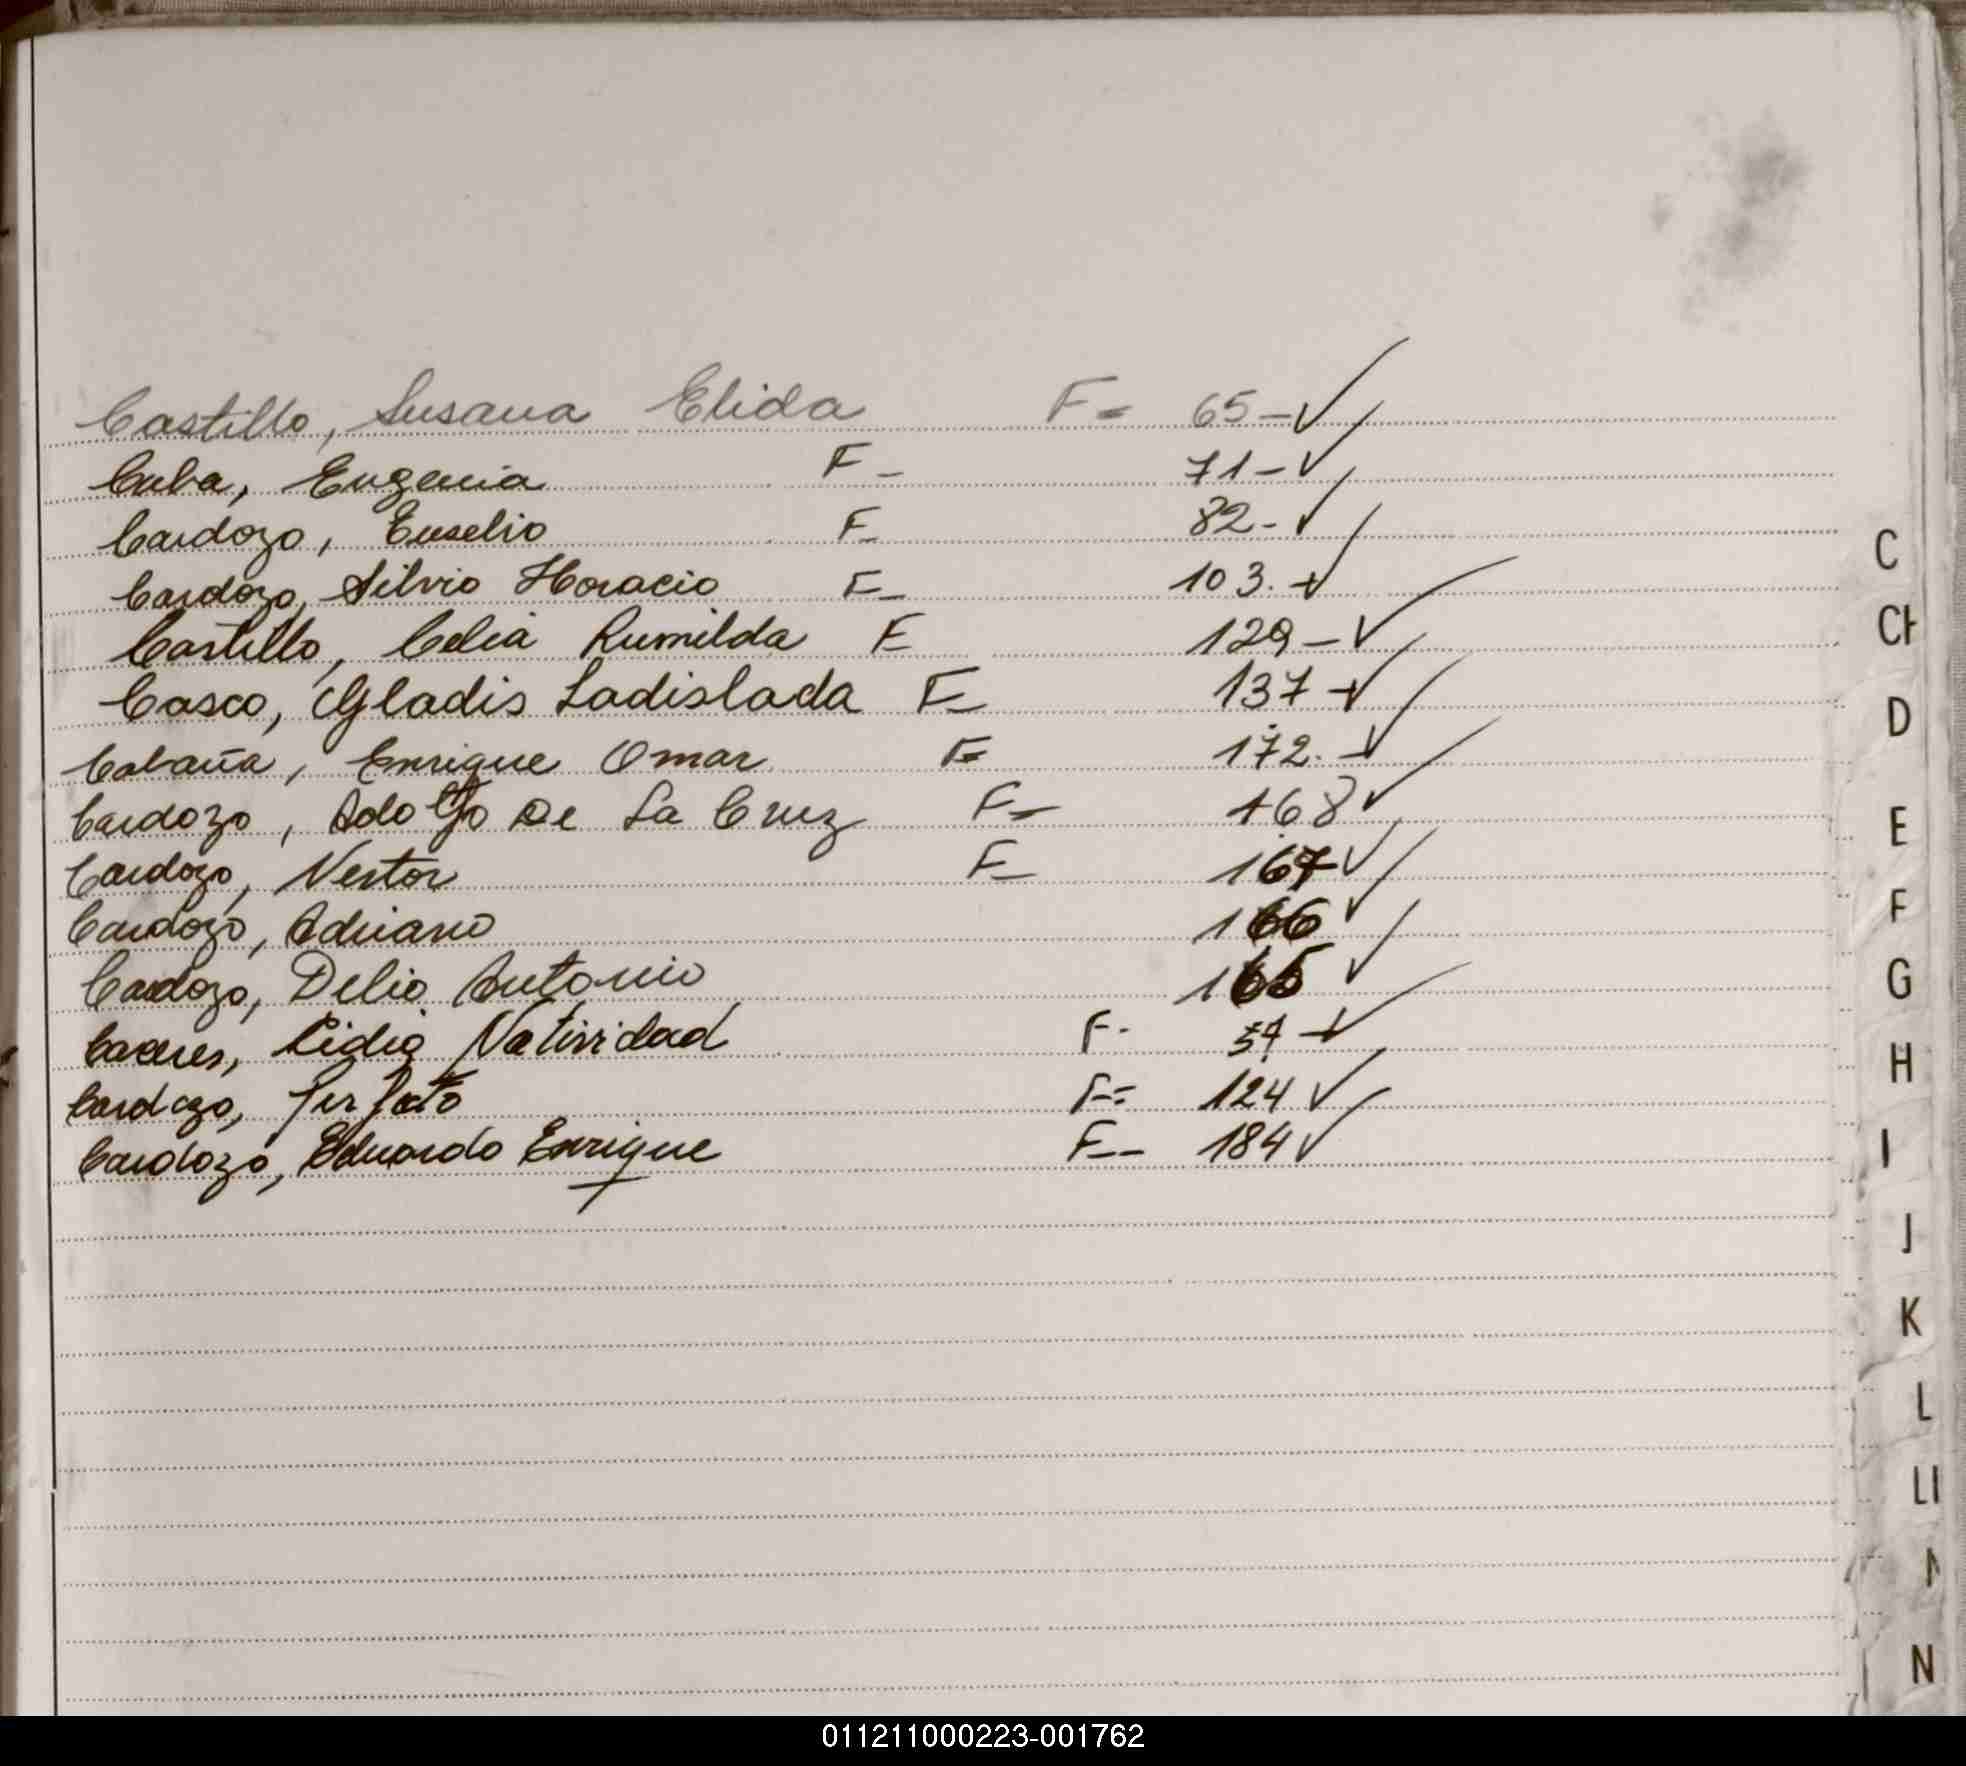 Castillo, Susana Elida F= 65-✓
Cuba, Eugenia F- 71-✓
Cardozo, Euselio F- 82-✓
Cardozo, Silvio Horacio F- 103.-✓
Castillo, Celia Rumilda F- 129-✓
Casco, Gladis Ladislada F- 137-✓
Cabaña, Enrique Omar F- 172.-✓
Cardozo, Adolfo De La Cruz F- 168✓
Cardozo, Nestor F- 167✓
Cardozo, Adriano 166✓
Cardozo, Delio Antonio 165✓
Caceres, Lidia Natividad F- ✓
Cardozo, F= 124✓
Cardozo, Eduardo Enrique F-- 184✓
C
CH
D
E
F
G
H
I
J
K
L
Ll
N
011211000223-001762